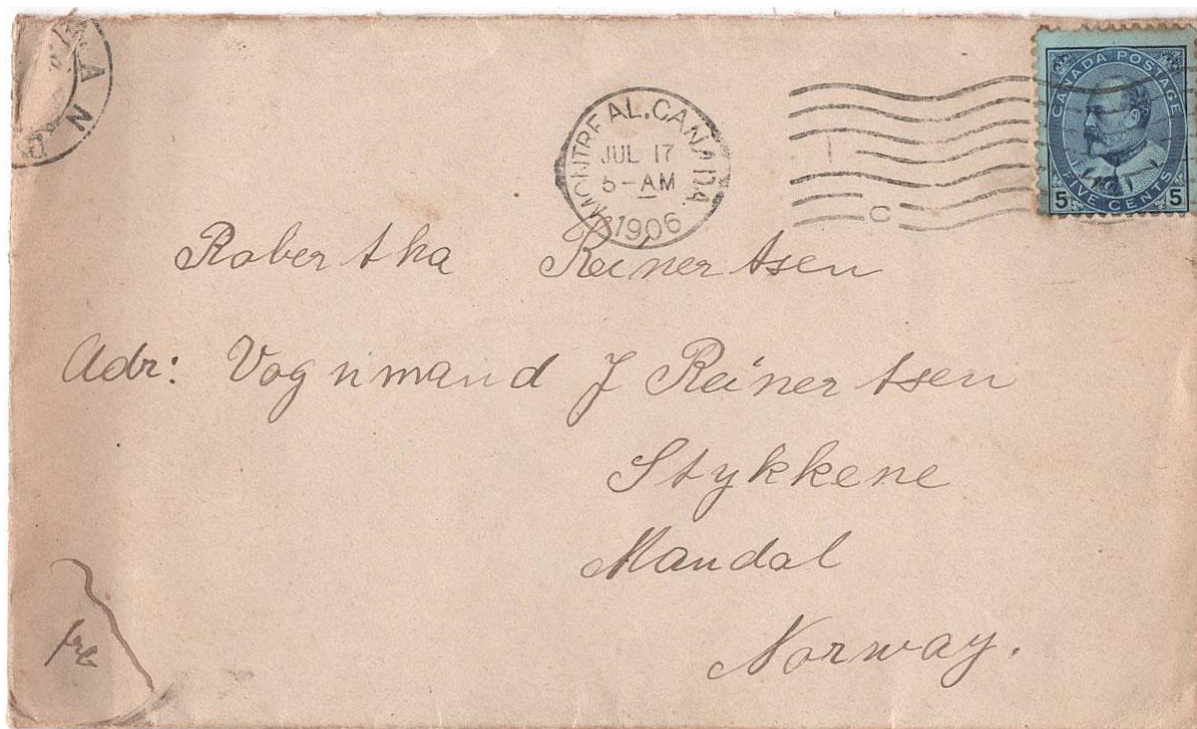 MONTREAL, CANADA
JUL 17
5-AM
1906
C
CANADA POSTAGE
FIVE CENTS
5 5
Robertha Reinertsen
Adr: Vognmand J Reinertsen
Stykkene
Mandal
Norway.